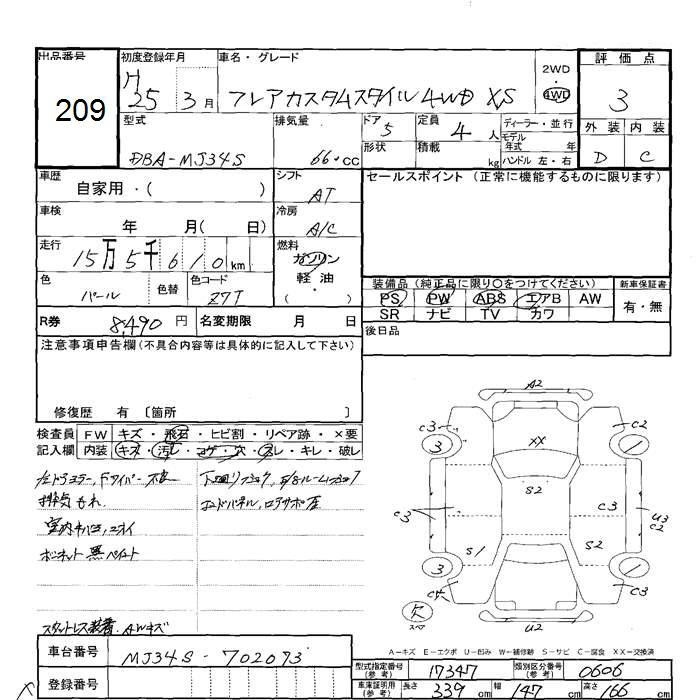 出品番号
209
初度登録年月
H
25 3月
車名・グレード
フレアカスタムスタイル4WD XS
2WD
・
4WD
評価点
3
外装 内装
D C
型式
DBA-MJ34S
排気量
66・cc
ドア 5
形状
定員 4人
積載 kg
ディーラー・並行
モデル
年式 年
ハンドル 左・右
車歴
自家用・( )
シフト
AT
セールスポイント (正常に機能するものに限ります)
車検
年 月( 日)
冷房
A/C
走行
15万5千610km
燃料
ガソリン
軽油
( ・ )
色
パール
色替
色コード
Z7T
装備品 (純正品に限り○をつけてください)
新車保証書
PS PW ABS エアB AW
SR ナビ TV カワ
有・無
R券 8,490円
名変期限 月 日
後日品
注意事項申告欄(不具合内容等は具体的に記入して下さい)
修復歴 有 〔箇所 〕
検査員
記入欄
FW キズ・飛石・ヒビ割・リペア跡・×要
内装 キズ・汚レ・コゲ・穴・スレ・キレ・破レ
排気もれ
室内キバミ、ニオイ
ボンネット黒ペイント
スタットレス装着 AWキズ
A2
C3 3 XX C2 1
S2
C3 C3 U3
C2
S1 S2
3 1
欠
スペア
U2
A-キズ E-エクボ U-凹み W-補修跡 S-サビ C-腐食 XX-交換済
車台番号 MJ34S-702073
登録番号
型式指定番号
(参考)
17347
類別区分番号
(参考)
0606
車庫証明用
(参考)
長さ 339cm 幅 147cm 高さ 166cm